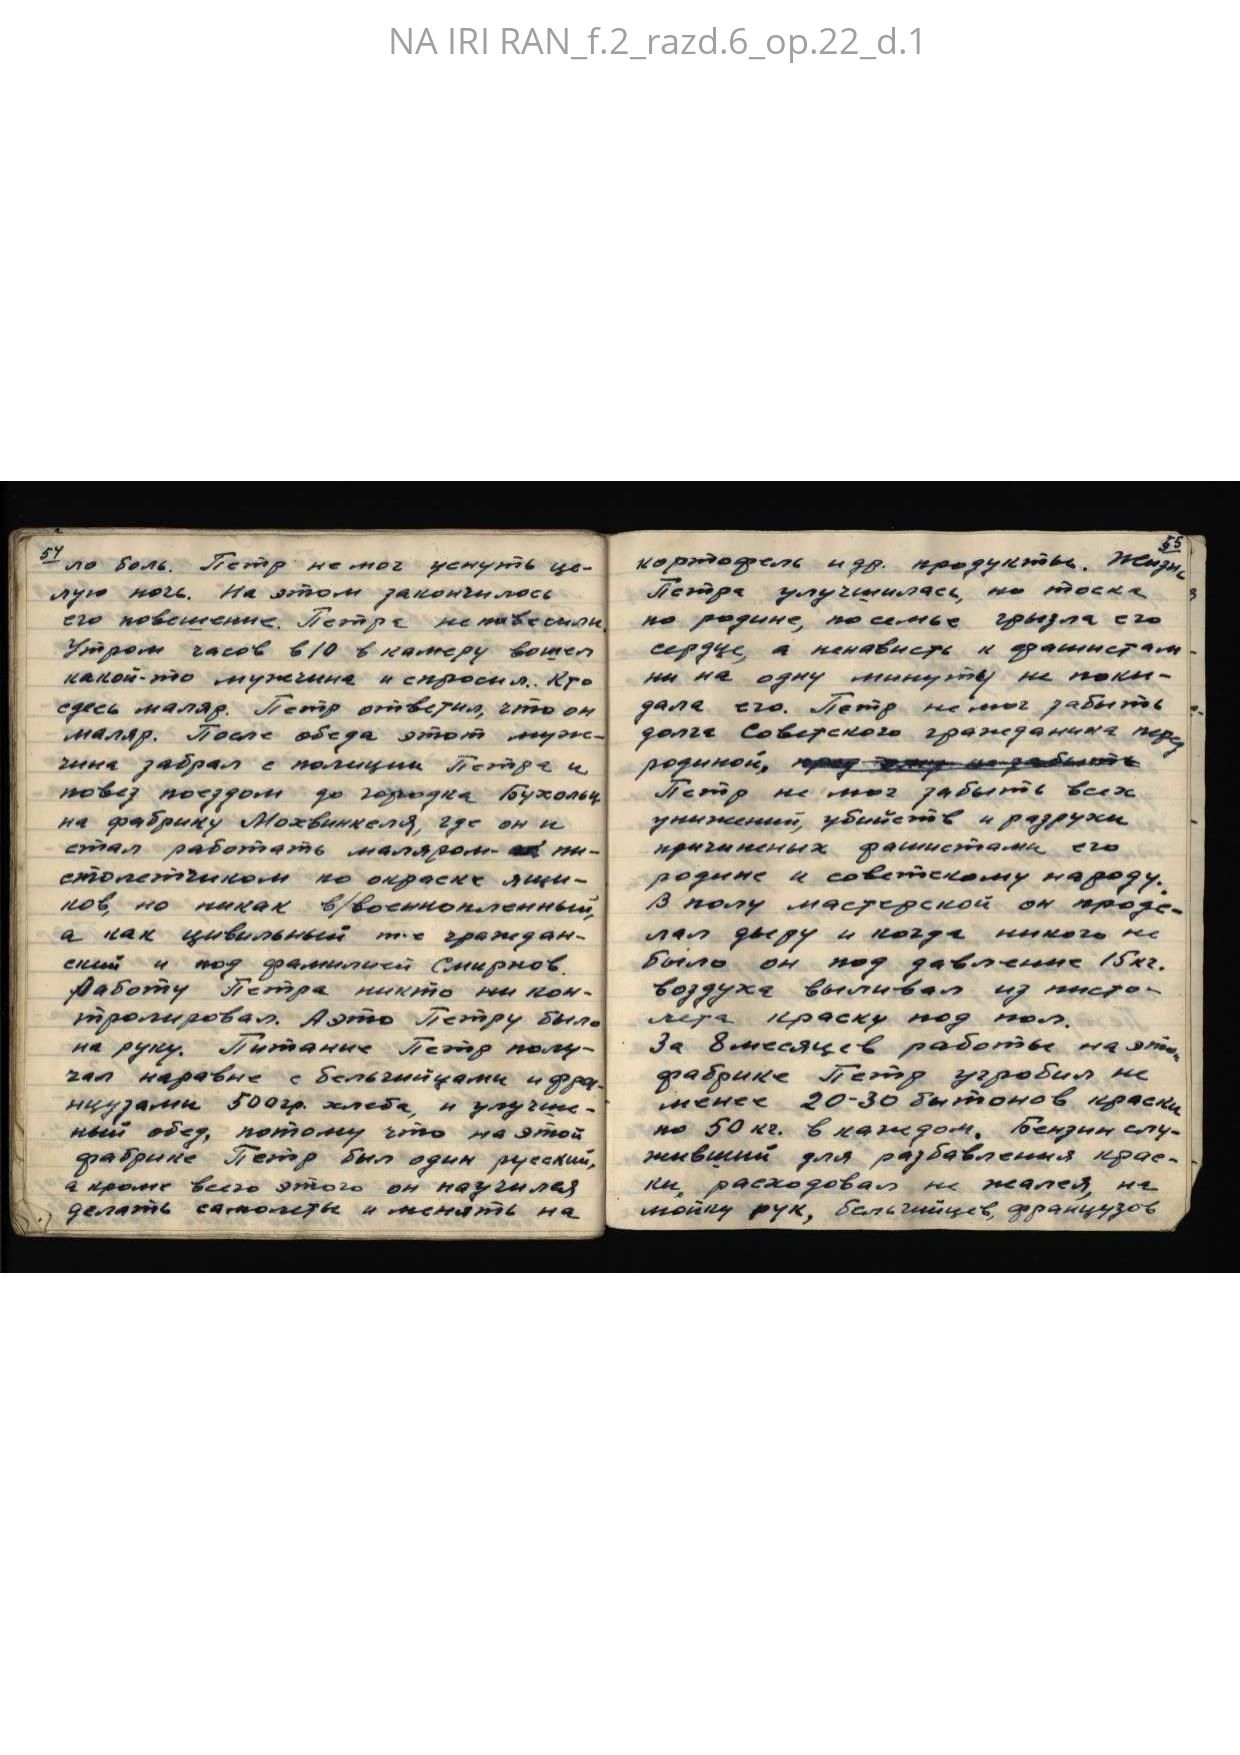 NA IRI RAN_f.2_razd.6_op.22_d.1
54
ло боль. Петр не мог уснуть це-
лую ночь. На этом закончилось
его повешение. Петра не повесили.
Утром часов в 10 в камеру вошел
какой-то мужчина и спросил.. Кто
сдесь маляр. Петр ответил, что он
маляр. После обеда этот муж-
чина забрал с полиции Петра и
повез поездом до городка Бухольц
на фабрику Мохвинкеля, где он и
стал работать маляром- пи-
столетчиком по окраске ящи-
ков, но никак в/военнопленный,
а как цивильный т-е граждан-
ский и под фамилией Смирнов.
Работу Петра никто ни кон-
тролировал. А это Петру было
на руку. Питание Петр полу-
чал наравне с бельгийцами и фра-
нцузами 500гр. хлеба, и улучше-
ный обед, потому что на этой
фабрике Петр был один русский,
а кроме всего этого он научился
делать самолеты и менять на
55
кортофель и др. продукты. Жизнь
Петра улучшилась, но тоска
по родине, по семье грызла его
сердце, а ненависть к фашистам
ни на одну минуту не поки-
дала его. Петр не мог забыть
долга Советского гражданина перед
родиной.
Петр не мог забыть всех
унижений, убийств и разрухи
причиненых фашистами его
родине и советскому народу.
В полу мастерской он проде-
лал дыру и когда никого не
было он под давление 15кг.
воздуха выливал из писто-
лета краску под пол.
За 8 месяцев работы на этой
фабрике Петр угробил не
менее 20-30 бытонов краски
по 50 кг. в каждом. Бензин слу-
живший для разбавления крас-
ки, расходовал не жалея, на
мойку рук, бельгийцев, французов